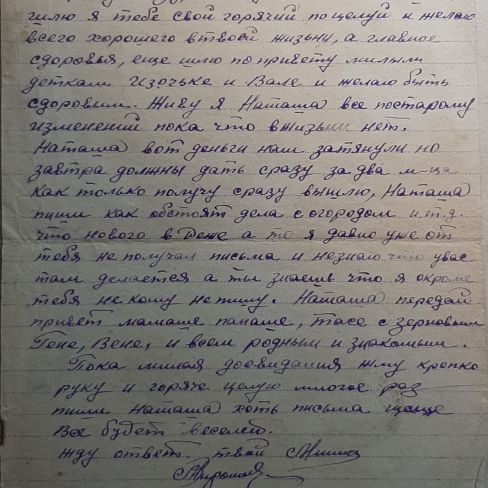 шлю я тебе свой горячий поцелуй и желаю
всего хорошего в твоей жизьни, а главное
сдоровья, еще шлю по привету милым
деткам Изочьке и Вале и желаю быть
сдоровым. Живу я Наташа все постарому
изменений пока что вжизьни нет.
Наташа вот деньги нам затянули но
завтра должны дать сразу за два м-ца
как только получу сразу вышлю, Наташа
пиши как обстоят дела с огородом и.т.д.
что нового в а то я давно уже от
тебя не получал письма и незнаю что увас
там делается а ты знаешь что я окроме
тебя не кому не пишу. Наташа передай
привет мамаше папаше, Тасе с
Гене, Вене, и всем родным и знакомым.
Пока милая досвидания жму крепко
руку и горяче целую многое раз
пиши Наташа хоть письма
Все будет веселей.
жду ответ. твой